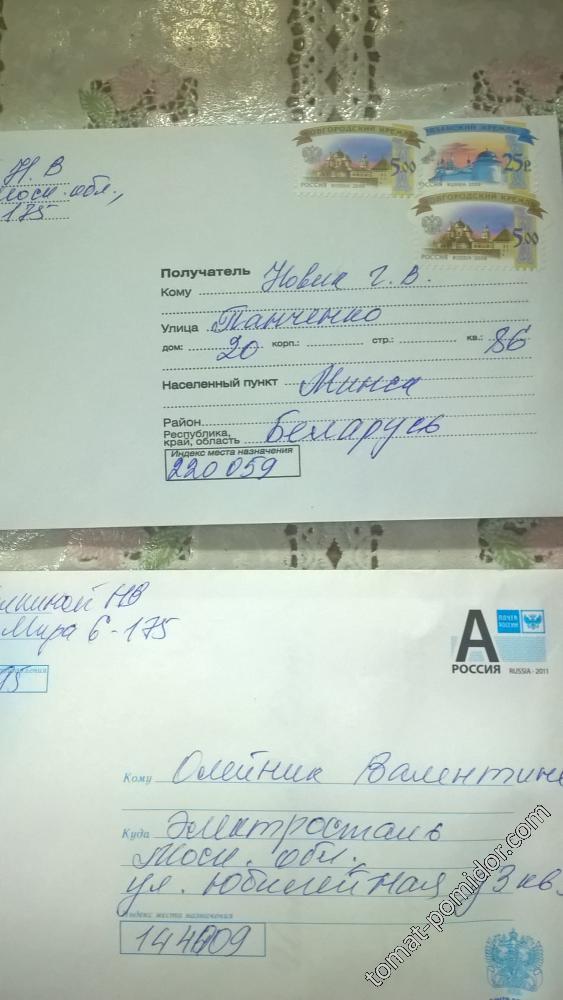 Н. В
Моск. обл.,
175
НОВГОРОДСКИЙ КРЕМЛЬ
5.00
РОССИЯ RUSSIA 2009
КАЗАНСКИЙ КРЕМЛЬ
25р
РОССИЯ RUSSIA 2009
НОВГОРОДСКИЙ КРЕМЛЬ
5.00
РОССИЯ RUSSIA 2009
Получатель
Кому Новик Г. В.
Улица Панченко
дом: 20 корп.: стр.: кв.: 86
Населенный пункт Минск
Район
Республика,
край, область Беларусь
Индекс места назначения
220059
НВ
Мира 6-175
95
ПОЧТА РОССИИ
А
РОССИЯ RUSSIA · 2011
Кому Олейник Валентине
Куда Электросталь
Моск. обл.,
ул. Юбилейная
Индекс места назначения
144009
tomat-pomidor.com